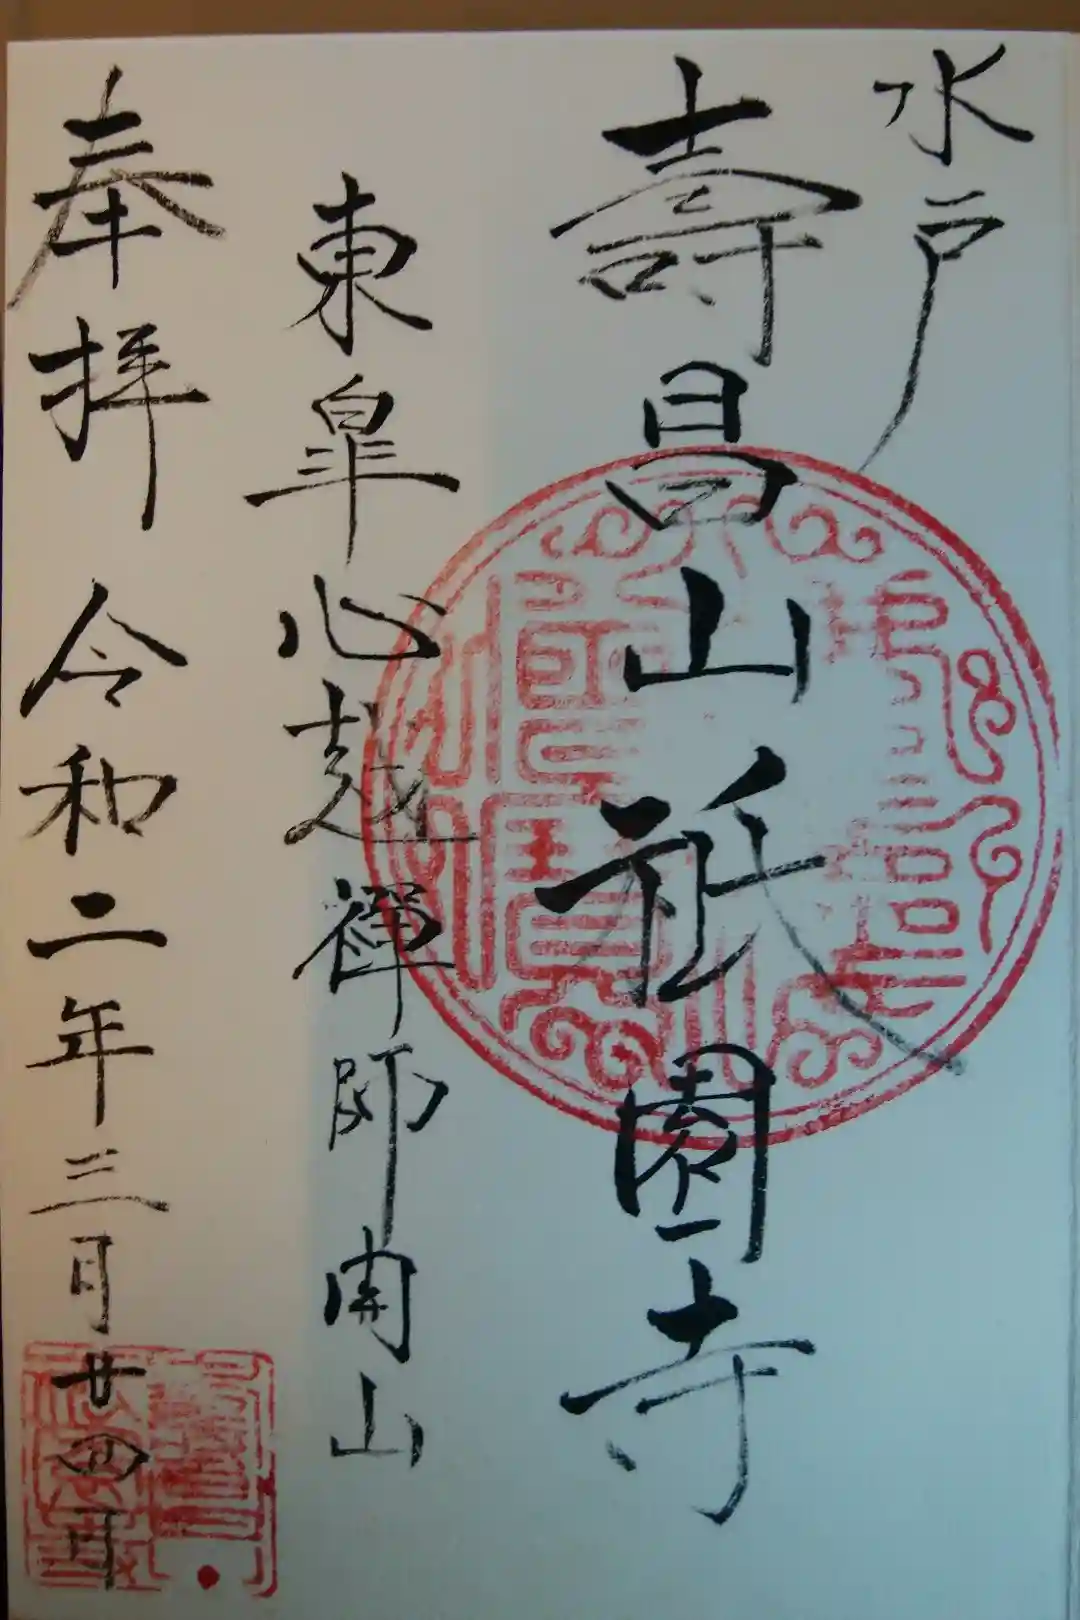 水戸
壽昌山祇園寺
東皐心越禅師開山
奉拝 令和二年三月廿四日